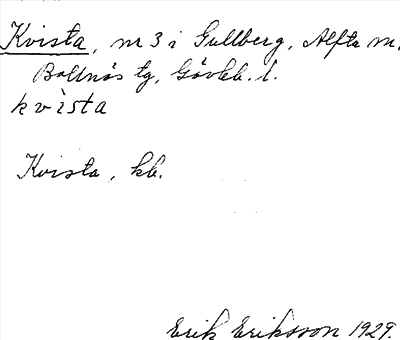 Kvista, nr 3 i Gullberg, Alfta sn,
Bollnäs tg, Gävleb. l.
kvìsta
Kvista, kb.
Erik Eriksson 1929.